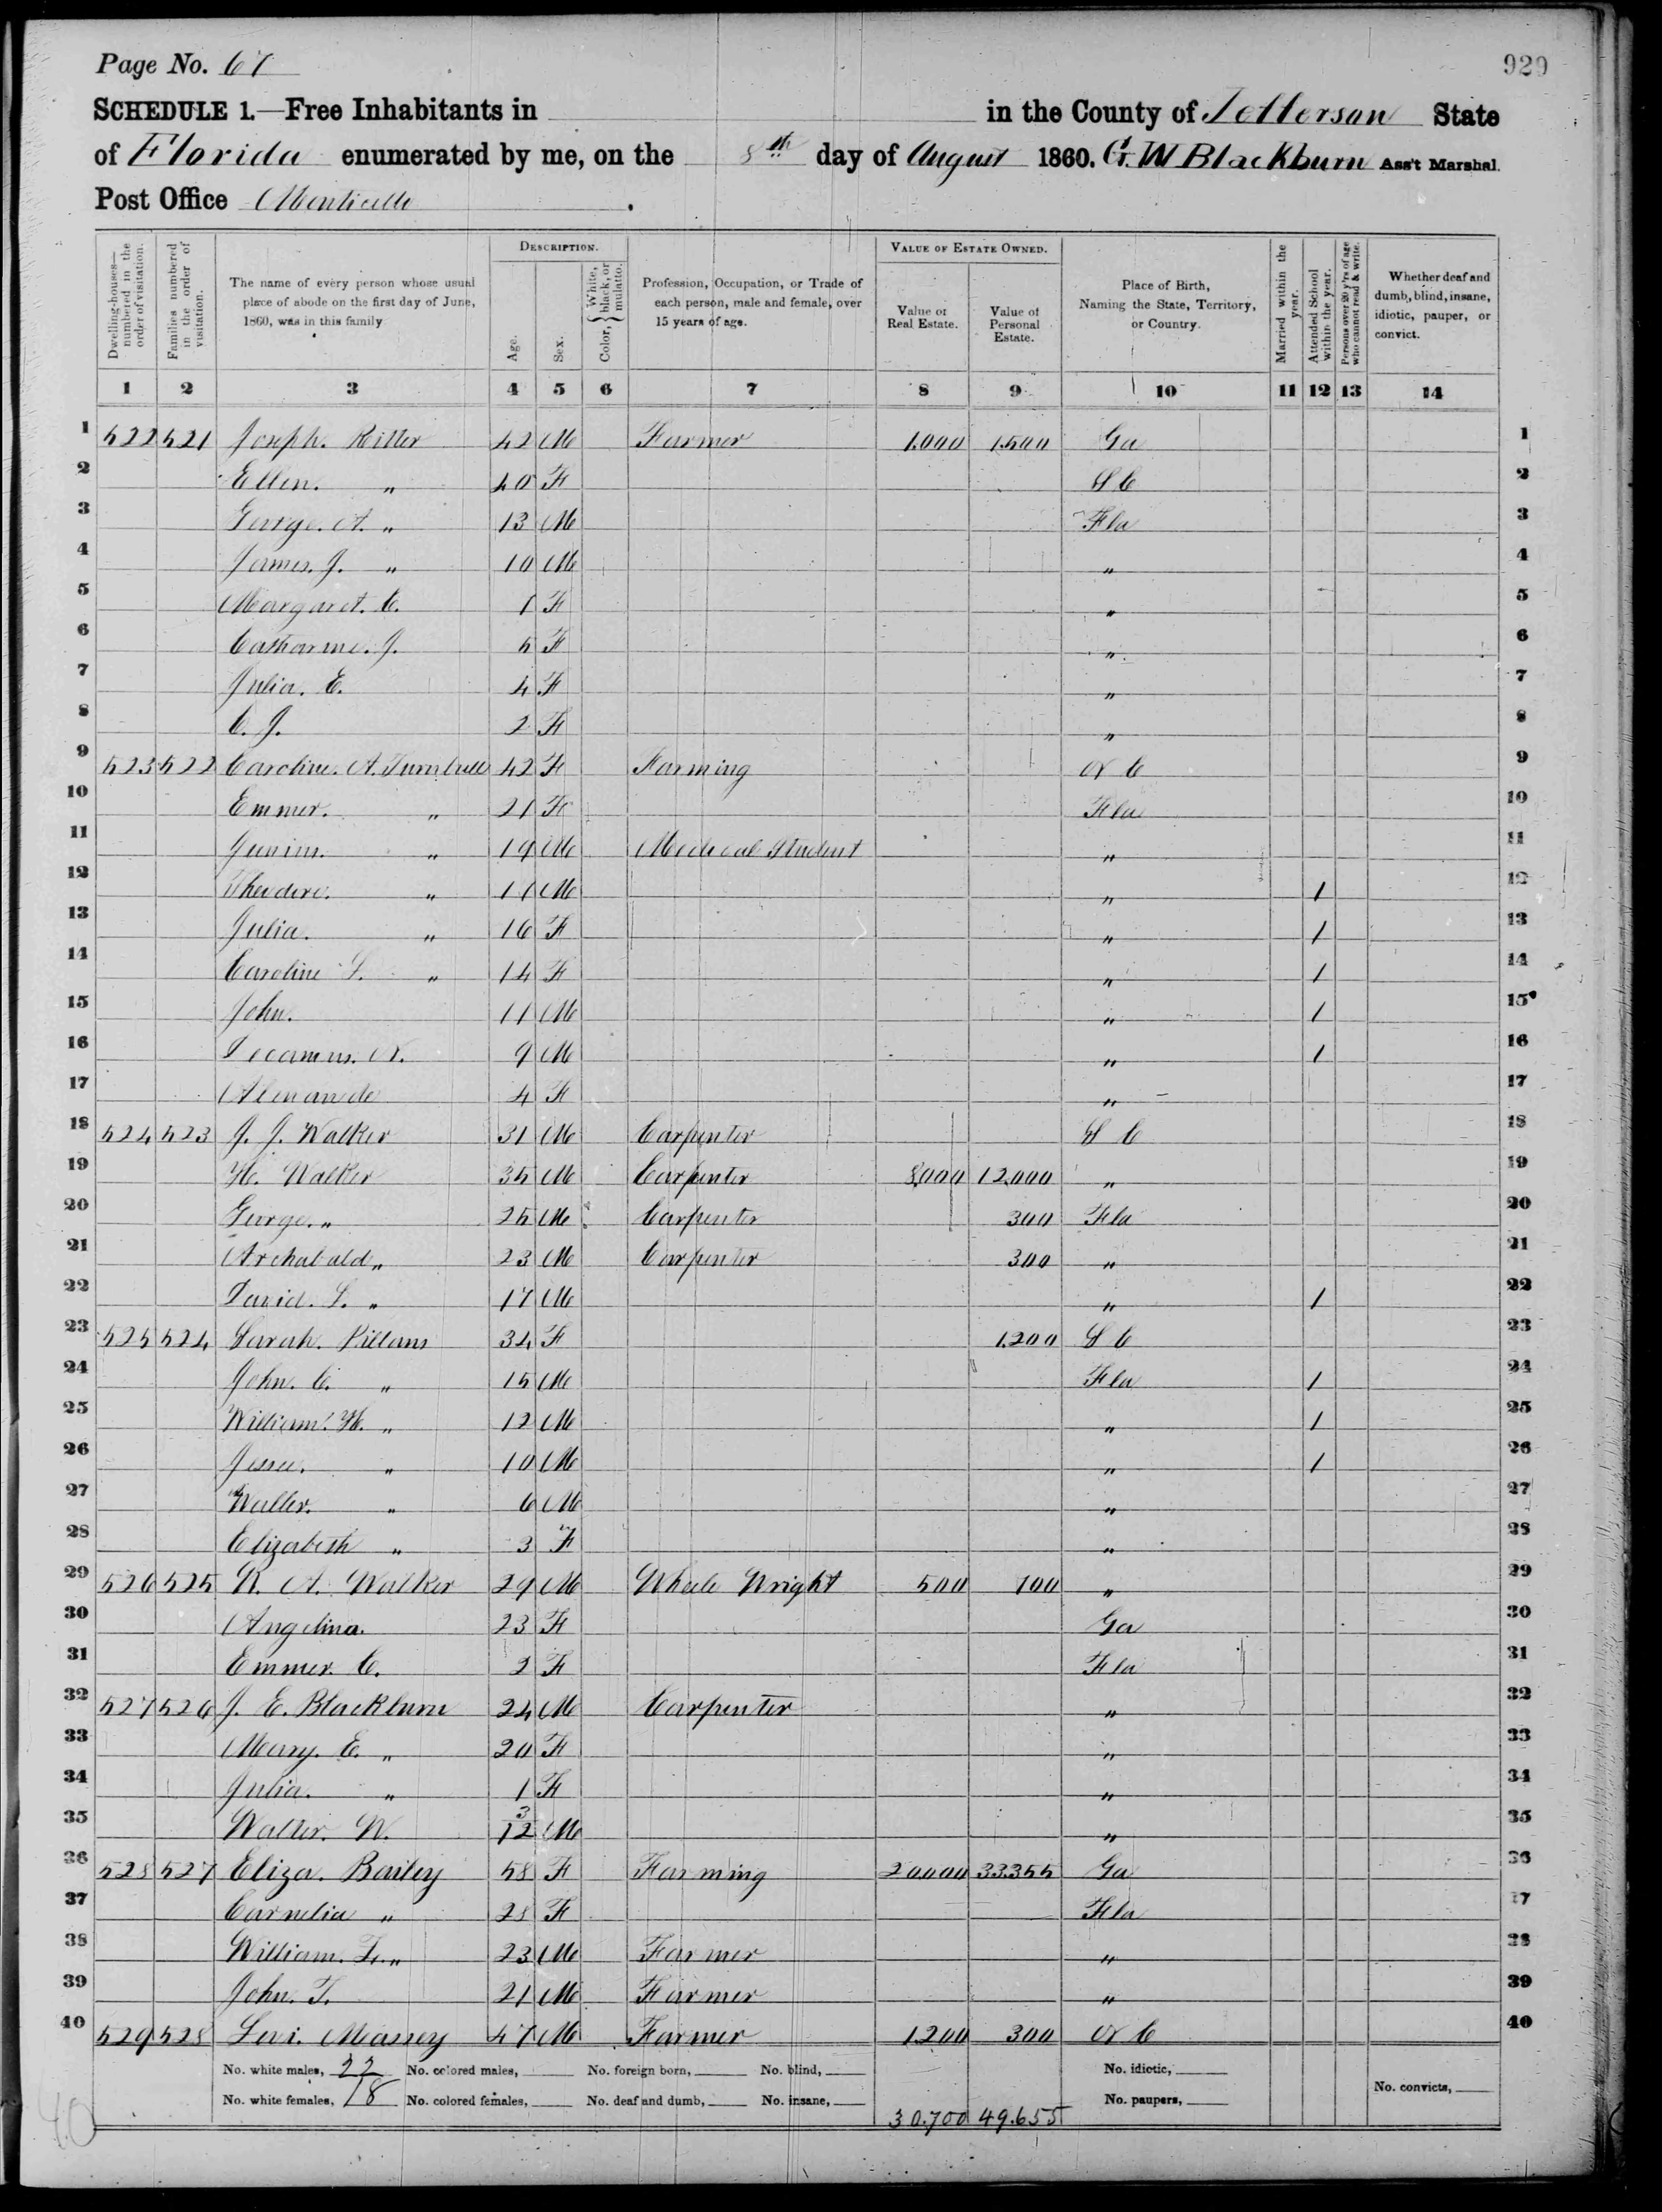 Page No. 67
929
SCHEDULE 1.—Free Inhabitants in in the County of Jefferson State
of Florida enumerated by me, on the 8th day of August 1860. G. W Blackburn Ass't Marshal.
Post Office Monticello
Dwelling-houses—numbered in the order of visitation.
Families numbered in the order of visitation.
The name of every person whose usual place of abode on the first day of June, 1860, was in this family
DESCRIPTION.
Age.
Sex.
Color, { White, black, or mulatto.
Profession, Occupation, or Trade of each person, male and female, over 15 years of age.
VALUE OF ESTATE OWNED.
Value of Real Estate.
Value of Personal Estate.
Place of Birth, Naming the State, Territory, or Country.
Married within the year.
Attended School within the year.
Persons over 20 y'rs of age who cannot read & write.
Whether deaf and dumb, blind, insane, idiotic, pauper, or convict.
1 2 3 4 5 6 7 8 9 10 11 12 13 14
1 522 521 Joseph. Ritter 42 M Farmer 1,000 1,500 Ga 1
2 Ellen. " 40 F S C 2
3 George. A. " 13 M Fla 3
4 James. J. " 10 M " 4
5 Margaret. C. F " 5
6 Catharine. J. 5 F " 6
7 Julia. E. 4 F " 7
8 C. J. 2 F " 8
9 523 522 Caroline. A. Turnbull 42 F Farming N C 9
10 Emmer. " 21 F Fla 10
11 Junius. " 19 M Medical Student " 11
12 Theodore. " M " 1 12
13 Julia. " 16 F " 1 13
14 Caroline L. " 14 F " 1 14
15 John. 11 M " 1 15
16 N. 9 M " 1 16
17 4 F " 17
18 524 523 J. J. Walker 31 M Carpenter S C 18
19 H. Walker 35 M Carpenter 8,000 12,000 " 19
20 George. " 25 M Carpenter 300 Fla 20
21 Archabald " 23 M Carpenter 300 " 21
22 David. L. " 17 M " 1 22
23 525 524 Sarah. Pillans 34 F 1,200 S C 23
24 John. C. " 15 M Fla 1 24
25 William. H. " 12 M " 1 25
26 Jesse. " 10 M " 1 26
27 Walter. " 6 M " 27
28 Elizabeth " 3 F " 28
29 526 525 R. A. Walker 29 M Whele Wright 500 700 " 29
30 Angelina. 23 F Ga 30
31 Emmer. C. 2 F Fla 31
32 527 526 J. E. Blackburn 24 M Carpenter " 32
33 Mary. E. " 20 F " 33
34 Julia. " 1 F " 34
35 Walter. W. 3/12 M " 35
36 528 527 Eliza. Bailey 58 F Farming 20,000 33,355 Ga 36
37 Cornelia " 28 F Fla 37
38 William. " 23 M Farmer " 38
39 John. T. 21 M Farmer " 39
40 529 528 Levi. Massey 47 M Farmer 1,200 300 N C 40
No. white males, 22 No. colored males, No. foreign born, No. blind, No. idiotic,
No. white females, 18 No. colored females, No. deaf and dumb, No. insane, No. paupers, No. convicts,
30.700 49.655
40